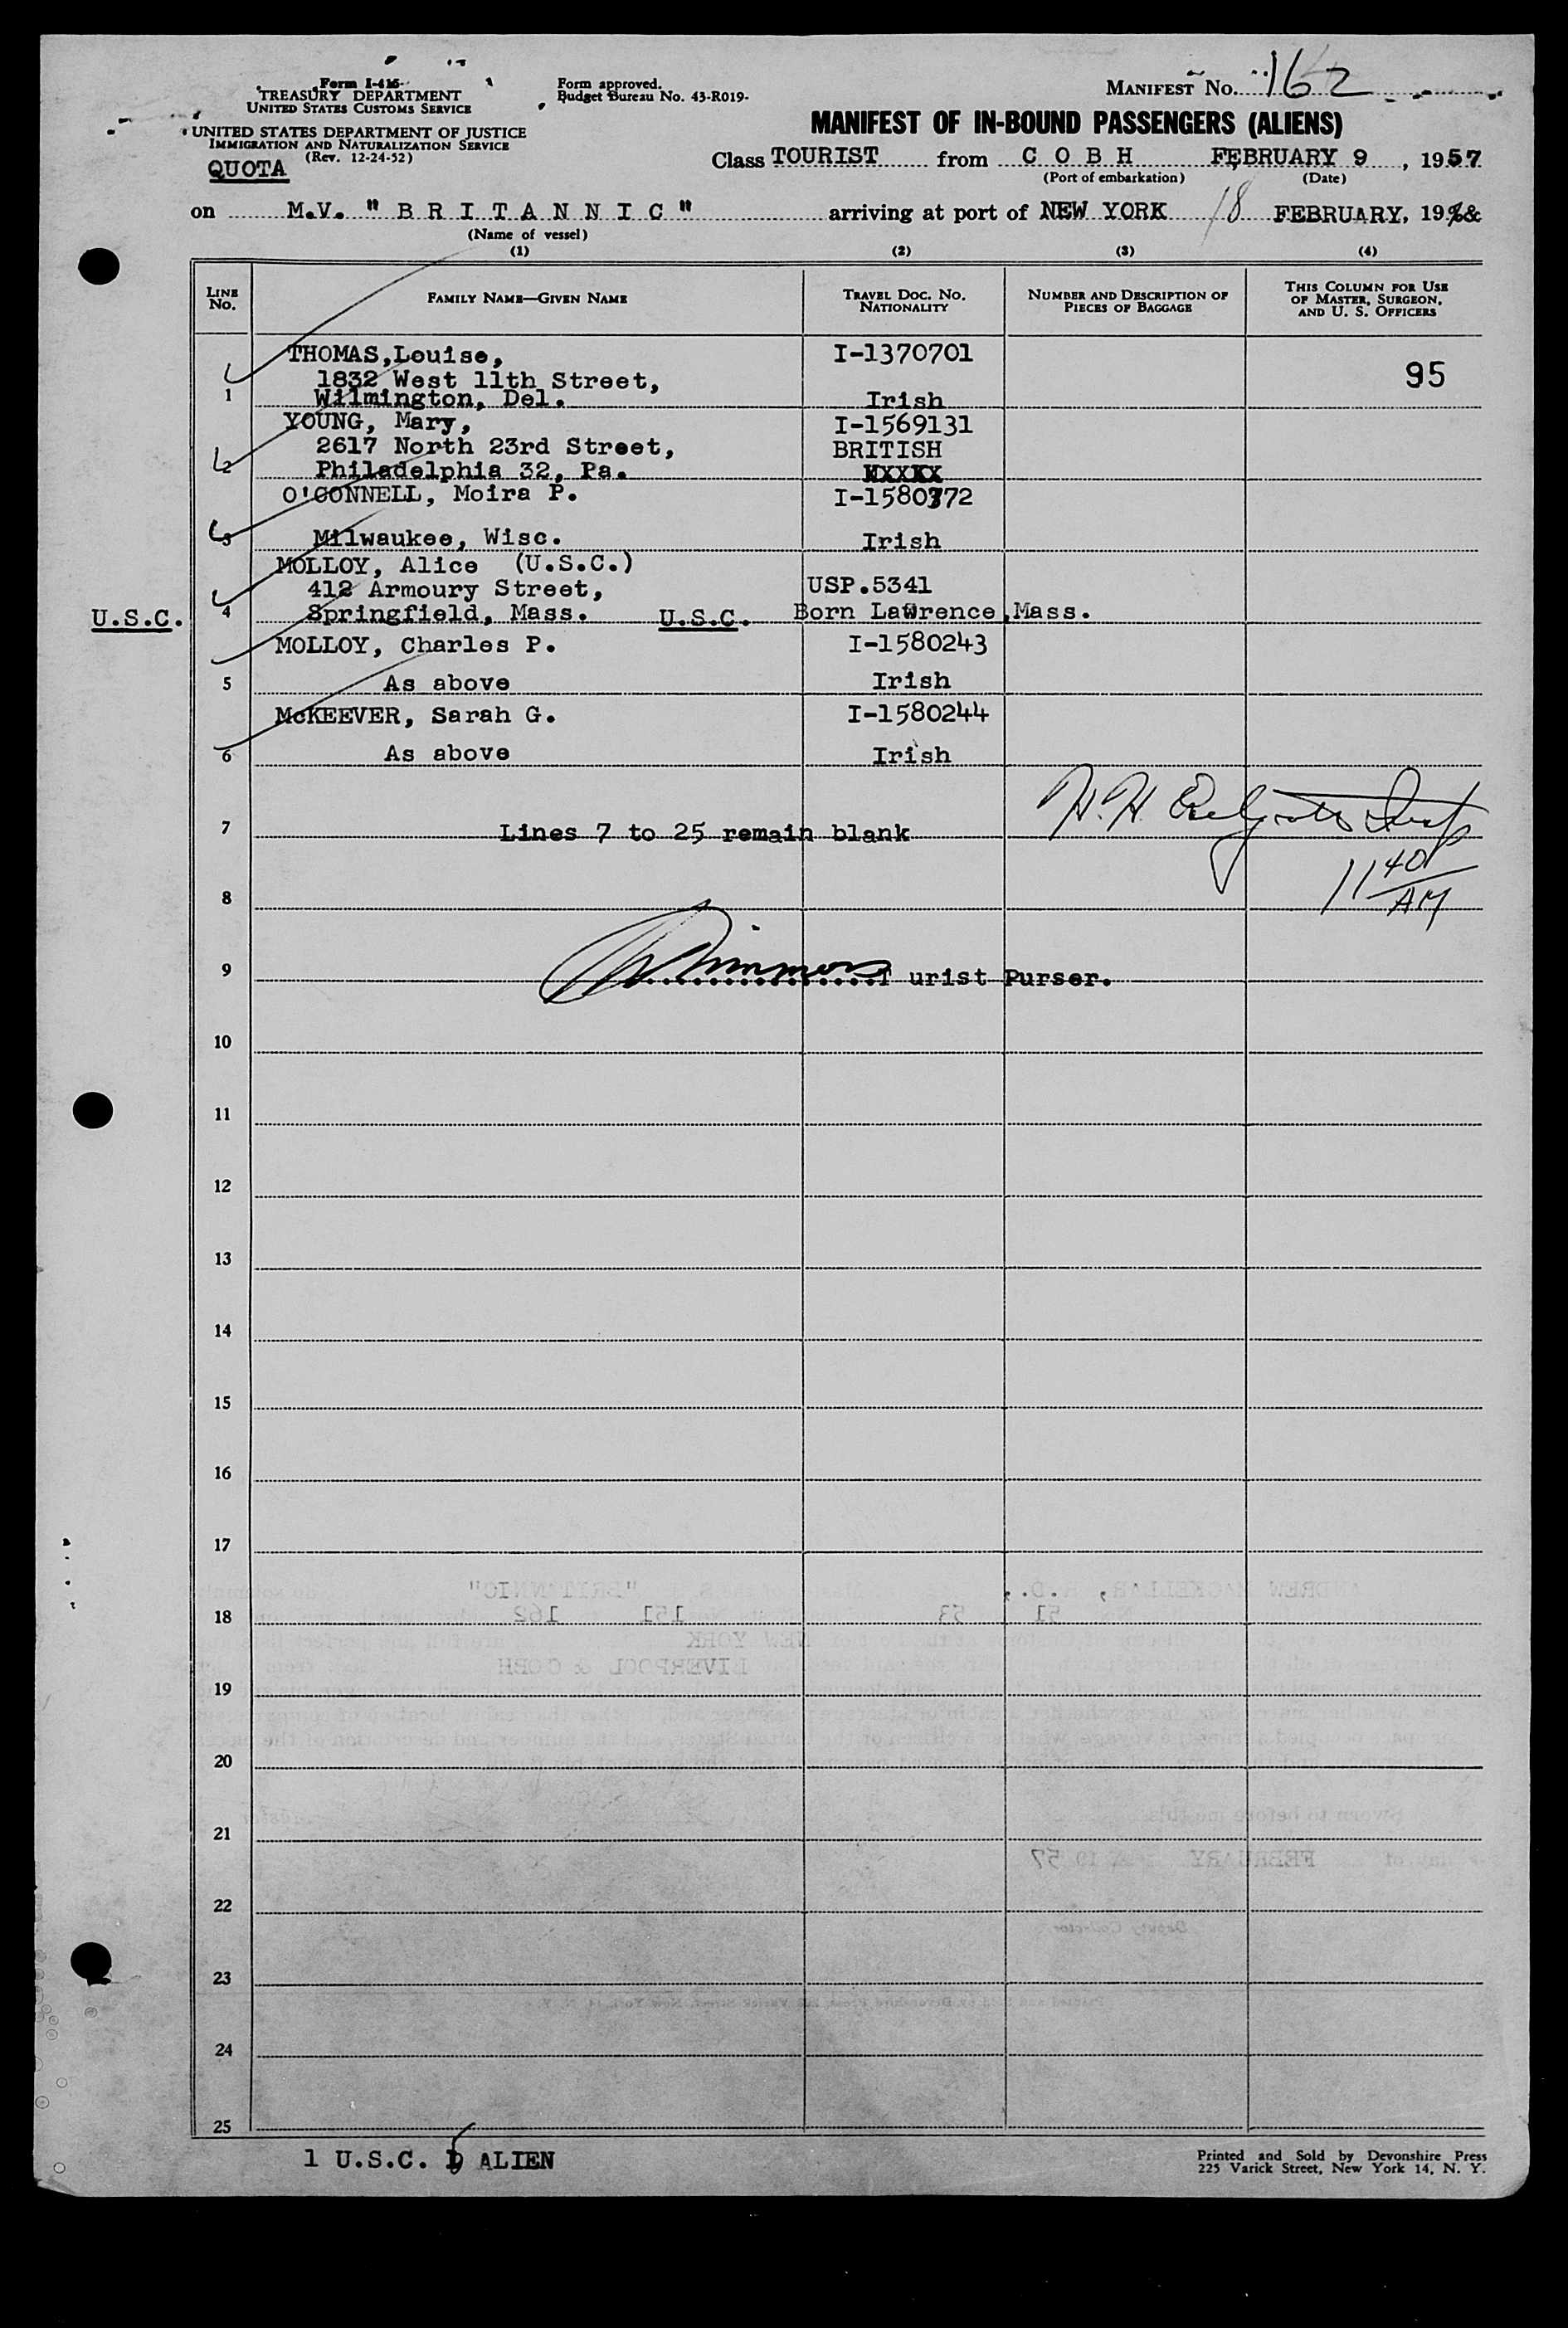 Form I-415
TREASURY DEPARTMENT
UNITED STATES CUSTOMS SERVICE
UNITED STATES DEPARTMENT OF JUSTICE
IMMIGRATION AND NATURALIZATION SERVICE
(Rev. 12-24-52)
QUOTA
Form approved.
Budget Bureau No. 43-R019-
MANIFEST No. 162
MANIFEST OF IN-BOUND PASSENGERS (ALIENS)
Class TOURIST from C O B H FEBRUARY 9, 1957
(Port of embarkation) (Date)
on M.V. "B R I T A N N I C" arriving at port of NEW YORK 18 FEBRUARY, 19
(Name of vessel)
(1) (2) (3) (4)
LINE No. FAMILY NAME—GIVEN NAME TRAVEL DOC. NO. NATIONALITY NUMBER AND DESCRIPTION OF PIECES OF BAGGAGE THIS COLUMN FOR USE OF MASTER, SURGEON, AND U. S. OFFICERS
THOMAS,Louise, I-1370701
1832 West 11th Street, 95
1 Wilmington, Del. Irish
YOUNG, Mary, I-1569131
2617 North 23rd Street, BRITISH
2 Philadelphia 32, Pa. XXXXX
O'CONNELL, Moira P. I-1580372
3 Milwaukee, Wisc. Irish
MOLLOY, Alice (U.S.C.)
412 Armoury Street, USP.5341
U.S.C. 4 Springfield, Mass. U.S.C. Born Lawrence,Mass.
MOLLOY, Charles P. I-1580243
5 As above Irish
McKEEVER, Sarah G. I-1580244
6 As above Irish
7 Lines 7 to 25 remain blank
11 40 AM
8
9 T urist Purser.
10
11
12
13
14
15
16
17
"BRITANNIC"
18 51 53 151 162
NEW YORK
LIVERPOOL & COBH
19
20
21
FEBRUARY 19 57
22
Deputy Collector
23
24
25
1 U.S.C. 5 ALIEN
Printed and Sold by Devonshire Press
225 Varick Street, New York 14, N. Y.